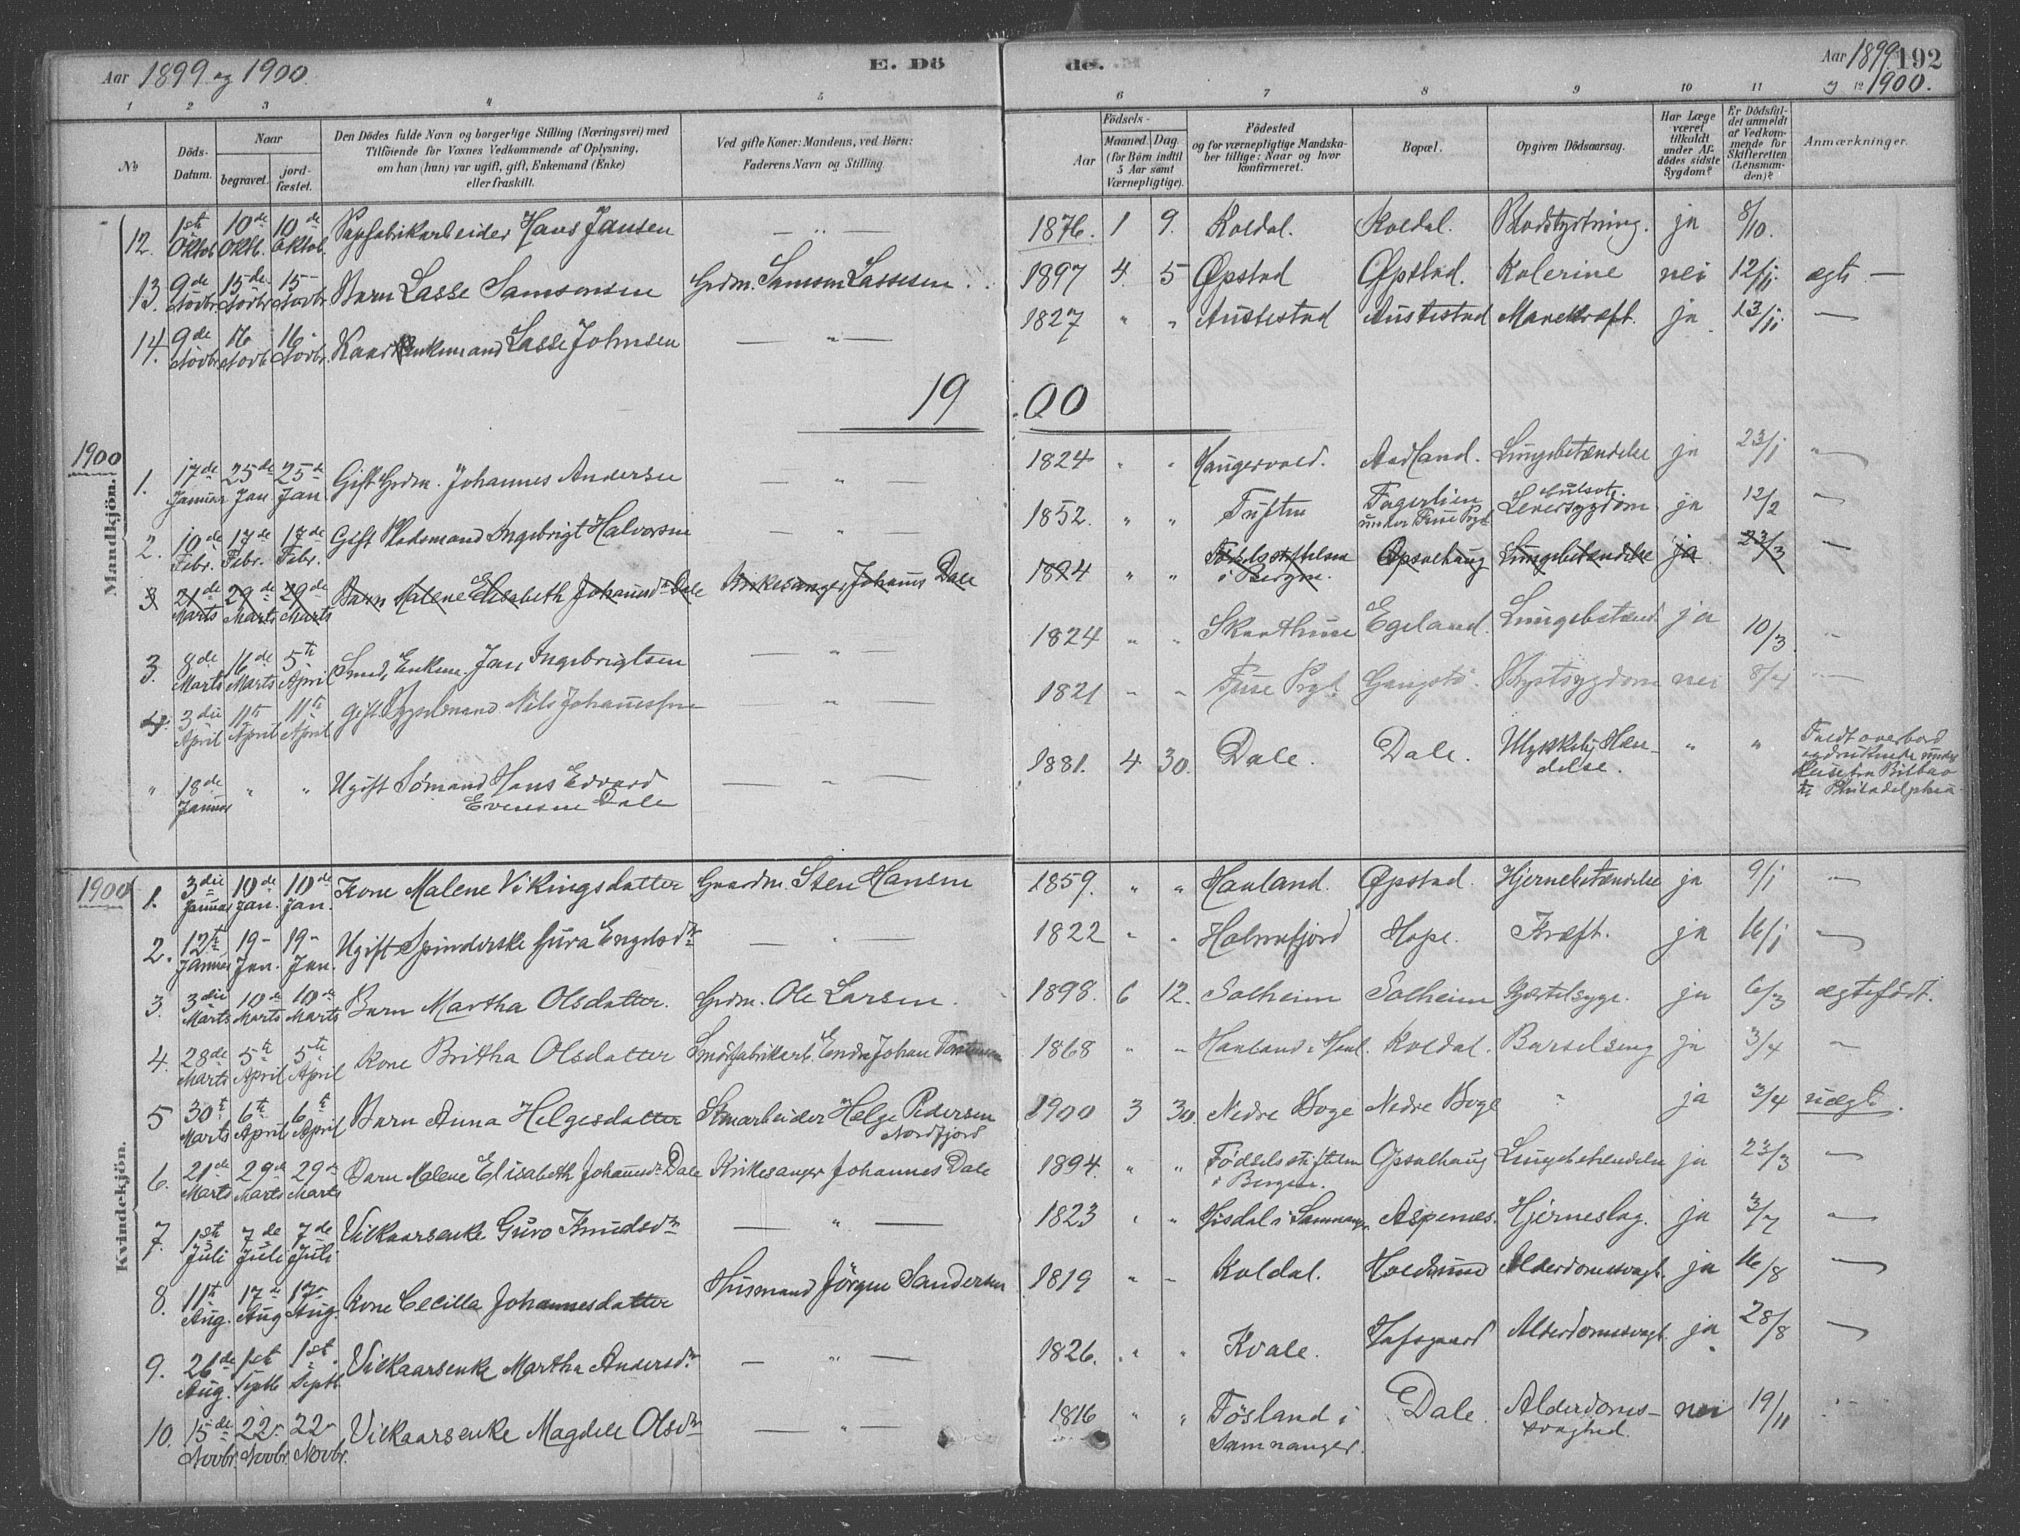 Aar 1899 og 1900. E. Dö
de. Aar 1899 192
og 1900.
1 2 3 4 5 6 7 8 9 10 11 12
No Döds-Datum. Naar begravet. jord-fæstet. Den Dödes fulde Navn og borgerlige Stilling (Næringsvei) med Tilföiende for Voxnes Vedkommende af Oplysning, om han (hun) var ugift, gift, Enkemand (Enke) eller fraskilt. Ved gifte Koner: Mandens, ved Börn: Faderens Navn og Stilling.
Födsels- Aar Maaned. Dag. (for Börn indtil 5 Aar samt Værnepligtige). Födested og for værnepligtige Mandska-ber tillige: Naar og hvor konfirmeret. Bopæl. Opgiven Dödsaarsag. Har Læge været tilkaldt under Af-dödes sidste Sygdom? Er Dödsfal-det anmeldt af Vedkom-mende for Skifteretten (Lensman-den)? Anmærkninger.
Mandkjön.
12. 1st Oktob. 10de Oktb. 10de Oktob. Papfabrikarbeider Hans Jansen — " — 1876. 1 9. Koldal. Koldal. Blodstyrtning. ja 8/10.
13. 9de Novbr 15de Novbr 15- Novbr. Barn Lasse Samsonsen Grdm. Samson Lassesen 1897 4. 5 Øpstad Øpstad. Kolerine nei 12/11 ægte —
14. 9de Novbr 16 Novb. 16- Novbr. Enkemand Lasse Johnsen — " — 1827 " " Austestad Austestad Mavekræft. ja 13/11 —
19 00
1900
1. 17de Januar 25de Jan 25de Jan. Gift Grdm. Johannes Andersen — " — 1824 " " Haugervold. Aadland. Lungebetændelse ja 23/1 —
2. 10de Febr. 17de Febr. 17de Febr. Gift Pladsmand Ingebrigt Halvorsen — " — 1852. " " Tuften Fagerlien under Fuse Prgl. Leversygdom ja 12/2 —
3 21de Marts 29de Marts 29de Marts Barn Malene Elisabeth Johannesdr Dale Kirkesanger Johannes Dale 1894 " " Fødselsstiftelsen i Bergen. Opsalhaug Lungebetændelse ja 23/3 —
3. 8de Marts 16de Marts 5te April Smed, Enkem. Jan Ingebrigtsen — " — 1824 " " Skarthun Egeland. Lungebetænd. ja 10/3. —
4. 3die April 11te April 11te April Gift Nils Johannessen — " — 1821 - - Fuse Prgl. Brystsygdom nei 8/4 —
" 18de Januar " " Ugift Sømand Hans Edvard Evensen Dale — " — 1881. 4 30. Dale. Dale. Ulykkelig Hæn-delse. " " Faldt overbord og druknede under Reise fra Bilbao til Philadelphia.
Kvindekjön.
1900
1. 3die Januar 10de Jan. 10de Jan. Kone Malene Vikingsdatter Gaardm. Sten Hansen 1859. " " Hauland. Øpstad. Hjernebetændelse ja 9/1 —
2. 12te Januar 19- Jan. 19- Jan. Ugift Spinderske Gura Engelsdr — " — 1822 " " Holmefjord Hope. Kræft. ja 16/1 —
3. 3die Marts 10de Marts 10de Marts Barn Martha Olsdatter. Grdm. Ole Larsen. 1898. 6 12. Solheim Solheim Kjertelsyge. ja 6/3 ægtefødt.
4. 28de Marts 5te April 5te April Kone Britha Olsdatter Endre Johan 1868 " " Hauland i Haal. Koldal. Barselseng ja 3/4 —
5 30te Marts 6te April 6te April Barn Anna Helgesdatter Stenarbeider Helge Pedersen Nordfjord 1900 3 30. Nedre Boge Nedre Boge " ja 3/4 uægte.
6. 21de Marts 29de Marts 29de Marts Barn Malene Elisabeth Johannesdr Dale Kirkesanger Johannes Dale 1894. " " Fødselsstiftelsen i Bergen. Opsalhaug Lungebetændelse ja 23/3 —
7. 1st Juli 7de Juli 7de Juli Vilkaarsenke Guro Knudsdr — " — 1823 " " Hisdal i Samnanger. Aspenes. Hjerneslag. ja 3/7 —
8. 11te Aug. 17de Aug 17de Aug. Kone Cecilla Johannesdatter Husmand Jörgen Sandersen 1819 " - Koldal. Holdsund Alderdomssvagh. ja 16/8 —
9. 26de Aug. 1st Septb 1st Septb. Vilkaarsenke Martha Andersdr — " — 1826. " " Kvale. Hafsgaard Alderdomssvagh. ja 28/8 —
10. 15de Novbr. 22- Novbr. 22- Novbr. Vilkaarsenke Magdele Olsdr — " — 1816 " " Tösland i Samnanger. Dale. Alderdoms-svaghed. nei 19/11 —